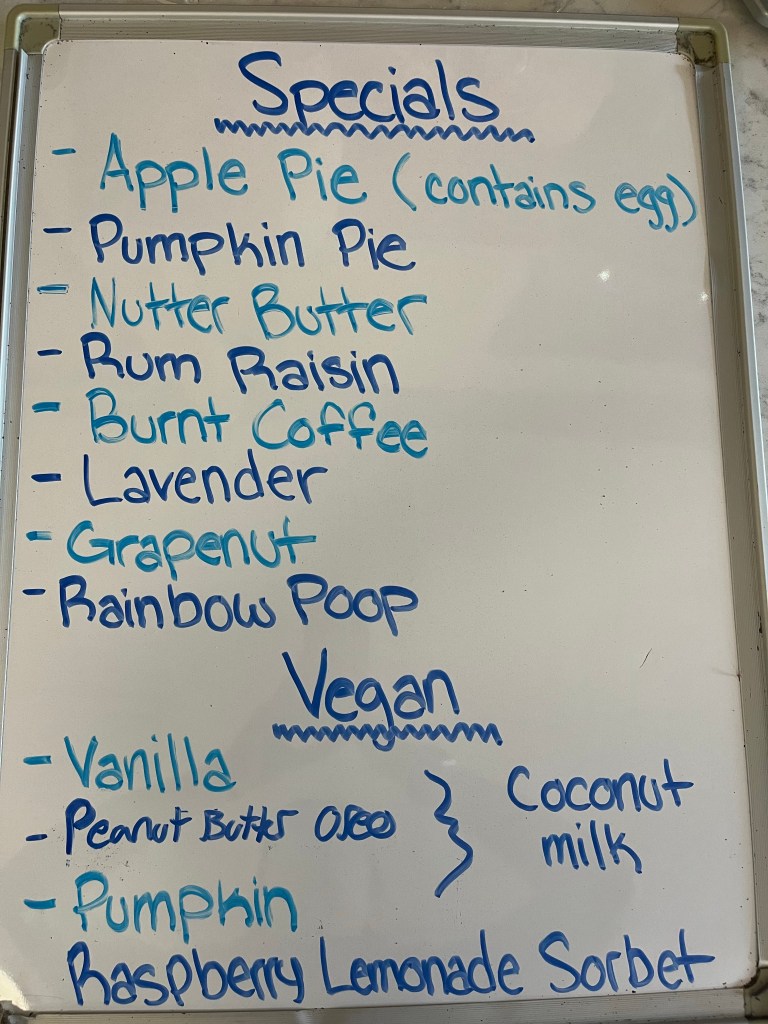 Specials
- Apple Pie (contains egg)
- Pumpkin Pie
- Nutter Butter
- Rum Raisin
- Burnt Coffee
- Lavender
- Grapenut
- Rainbow Poop
Vegan
- Vanilla
- Peanut Butter Oreo
- Pumpkin
} Coconut milk
Raspberry Lemonade Sorbet